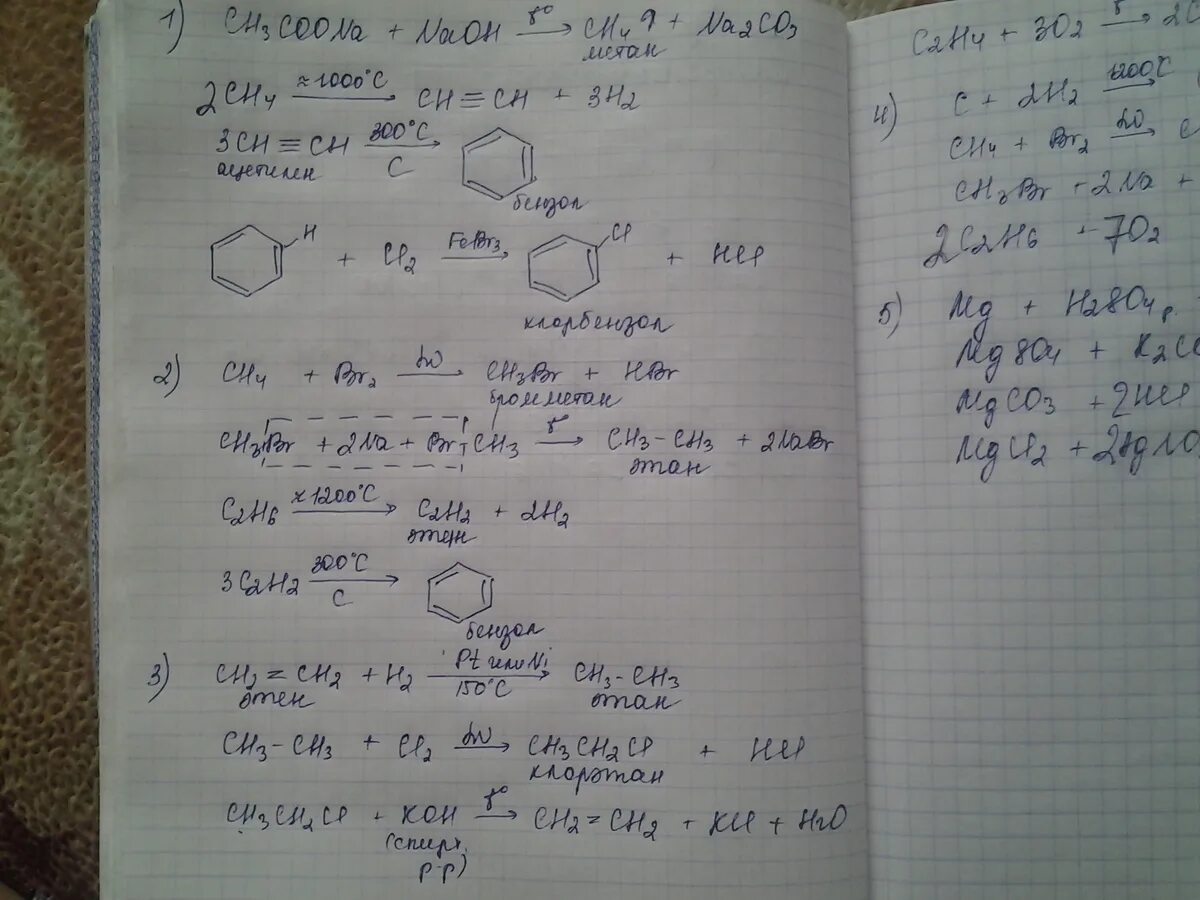 1) CH3COONa + NaOH t° → CH4↑ + Na2CO3
метан
2CH4 ≈1000°C → CH≡CH + 3H2
3CH≡CH 300°C → C
ацетилен
бензол
H + Cl2 FeBr3 → Cl + HCl
хлорбензол
2) CH4 + Br2 hν → CH3Br + HBr
бромметан
CH3Br + 2Na + Br-CH3 t° → CH3-CH3 + 2NaBr
этан
C2H6 ≈1200°C → C2H2 + 2H2
этен
3C2H2 300°C → C
бензол
3) CH2=CH2 + H2 Pt или Ni → 150°C CH3-CH3
этен этан
CH3-CH3 + Cl2 hν → CH3CH2Cl + HCl
хлорэтан
CH3CH2Cl + KOH t° → CH2=CH2 + KCl + H2O
(спирт.
р-р)
C2H4 + 3O2 t → 2C
4) C + 2H2 1200°C →
CH4 + Br2 hν → C
CH3Br + 2Na +
2C2H6 + 7O2
5) Mg + H2SO4 р.
MgSO4 + K2CO
MgCO3 + 2HCl
MgCl2 + 2AgNO